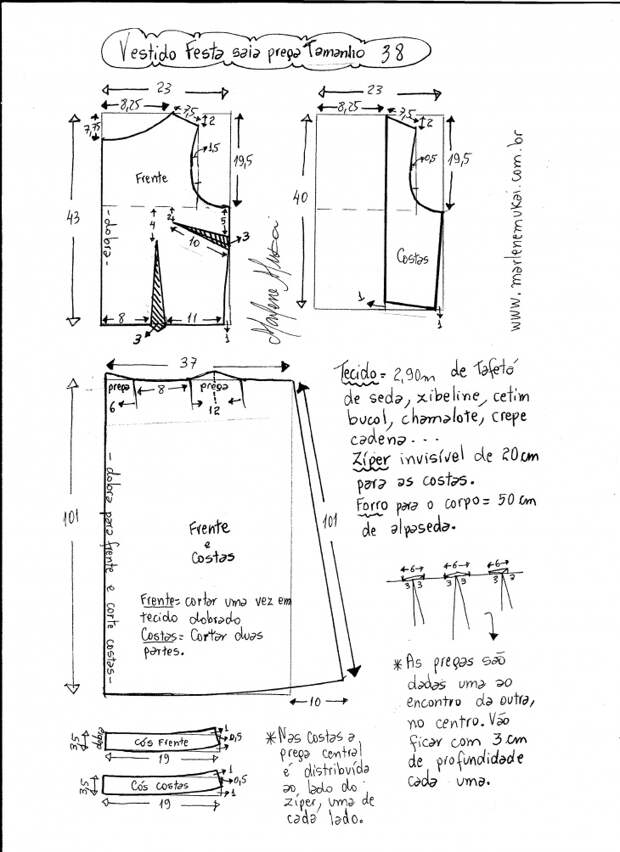 Vestido Festa saia prega Tamanho 38
23
8,25
7,5
2
7,75
1,5
19,5
Frente
43
- dobra -
4
2
5
3
10
8
11
3
1
Marlene Mukai
23
8,25
7,5
2
0,5
19,5
40
Costas
1
1
www.marlenemukai.com.br
37
prega
8
prega
6
12
101
101
- dobra para frente e corte costas -
Frente
e
Costas
Frente= cortar uma vez em
tecido dobrado
Costas= Cortar duas
partes.
10
Tecido= 2,90m de Tafetá
de seda, xibeline, cetim
bucol, chamalote, crepe
cadena...
Zíper invisível de 20cm
para as costas.
Forro para o corpo= 50 cm
de alpaseda.
6
6
6
3 3
3 3
3 2
*As pregas são
dadas uma ao
encontro da outra,
no centro. Vão
ficar com 3 cm
de profundidade
cada uma.
3,5
dobra
Cós Frente
1
0,5
1
19
3,5
Cós costas
1
0,5
1
19
*Nas Costas a
prega central
é distribuída
ao lado do
zíper, uma de
cada lado.